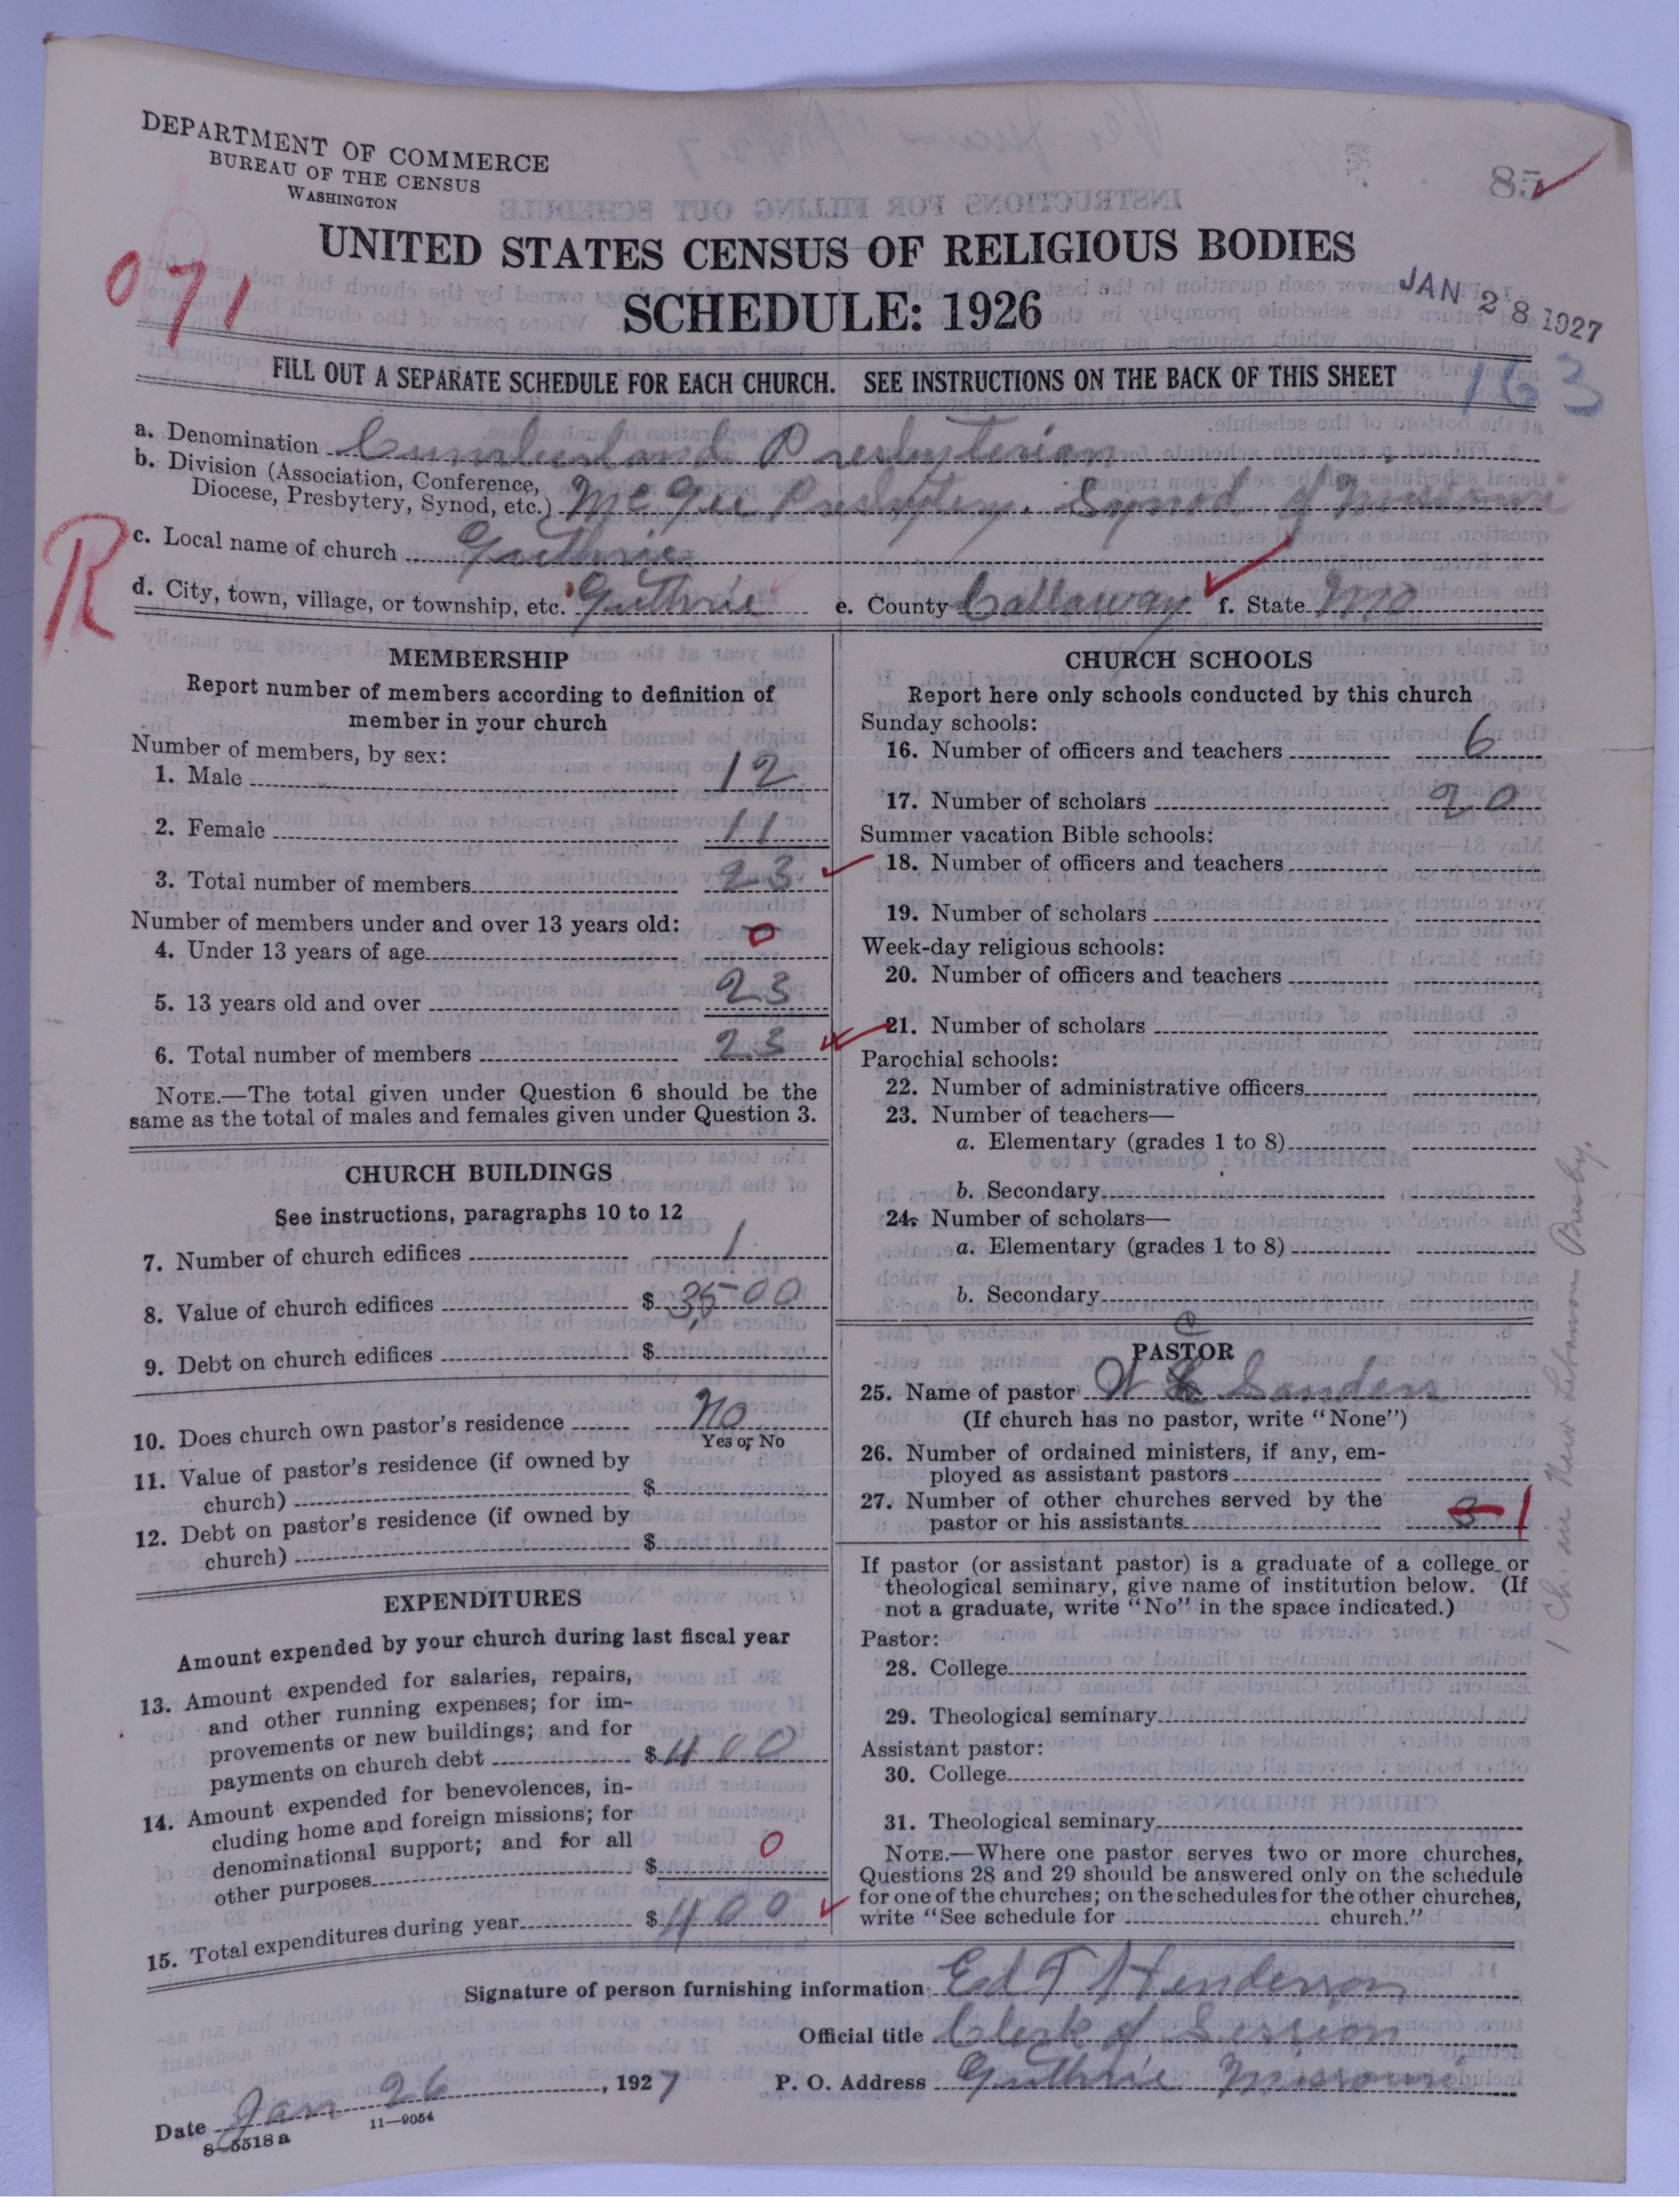 DEPARTMENT OF COMMERCE
BUREAU OF THE CENSUS
WASHINGTON
85
UNITED STATES CENSUS OF RELIGIOUS BODIES
071
SCHEDULE: 1926
JAN 28 1927
FILL OUT A SEPARATE SCHEDULE FOR EACH CHURCH. SEE INSTRUCTIONS ON THE BACK OF THIS SHEET
163
a. Denomination Cumberland Presbyterian
b. Division (Association, Conference,
Diocese, Presbytery, Synod, etc.) McGee Presbytery. Synod of Missouri
R
c. Local name of church Guthrie
d. City, town, village, or township, etc. Guthrie e. County Callaway f. State Mo
MEMBERSHIP
Report number of members according to definition of
member in your church
Number of members, by sex:
1. Male 12
2. Female 11
3. Total number of members 23
Number of members under and over 13 years old:
4. Under 13 years of age 0
5. 13 years old and over 23
6. Total number of members 23
NOTE.—The total given under Question 6 should be the
same as the total of males and females given under Question 3.
CHURCH BUILDINGS
See instructions, paragraphs 10 to 12
7. Number of church edifices 1
8. Value of church edifices $ 3,500
9. Debt on church edifices $
10. Does church own pastor's residence No
Yes or No
11. Value of pastor's residence (if owned by
church) $
12. Debt on pastor's residence (if owned by
church) $
EXPENDITURES
Amount expended by your church during last fiscal year
13. Amount expended for salaries, repairs,
and other running expenses; for im-
provements or new buildings; and for
payments on church debt $ 400
14. Amount expended for benevolences, in-
cluding home and foreign missions; for
denominational support; and for all
other purposes $ 0
15. Total expenditures during year $ 400
CHURCH SCHOOLS
Report here only schools conducted by this church
Sunday schools:
16. Number of officers and teachers 6
17. Number of scholars 20
Summer vacation Bible schools:
18. Number of officers and teachers
19. Number of scholars
Week-day religious schools:
20. Number of officers and teachers
21. Number of scholars
Parochial schools:
22. Number of administrative officers
23. Number of teachers—
a. Elementary (grades 1 to 8)
b. Secondary
24. Number of scholars—
a. Elementary (grades 1 to 8)
b. Secondary
PASTOR
C
25. Name of pastor W Sanders
(If church has no pastor, write "None")
26. Number of ordained ministers, if any, em-
ployed as assistant pastors
27. Number of other churches served by the
pastor or his assistants 3 1
If pastor (or assistant pastor) is a graduate of a college or
theological seminary, give name of institution below. (If
not a graduate, write "No" in the space indicated.)
Pastor:
28. College
29. Theological seminary
Assistant pastor:
30. College
31. Theological seminary
NOTE.—Where one pastor serves two or more churches,
Questions 28 and 29 should be answered only on the schedule
for one of the churches; on the schedules for the other churches,
write "See schedule for church."
1 Ch. in New Lebanon Presby.
Signature of person furnishing information Ed T Henderson
Official title Clerk of Session
Date Jan 26, 1927 P. O. Address Guthrie Missouri
8—5518 a 11—9054